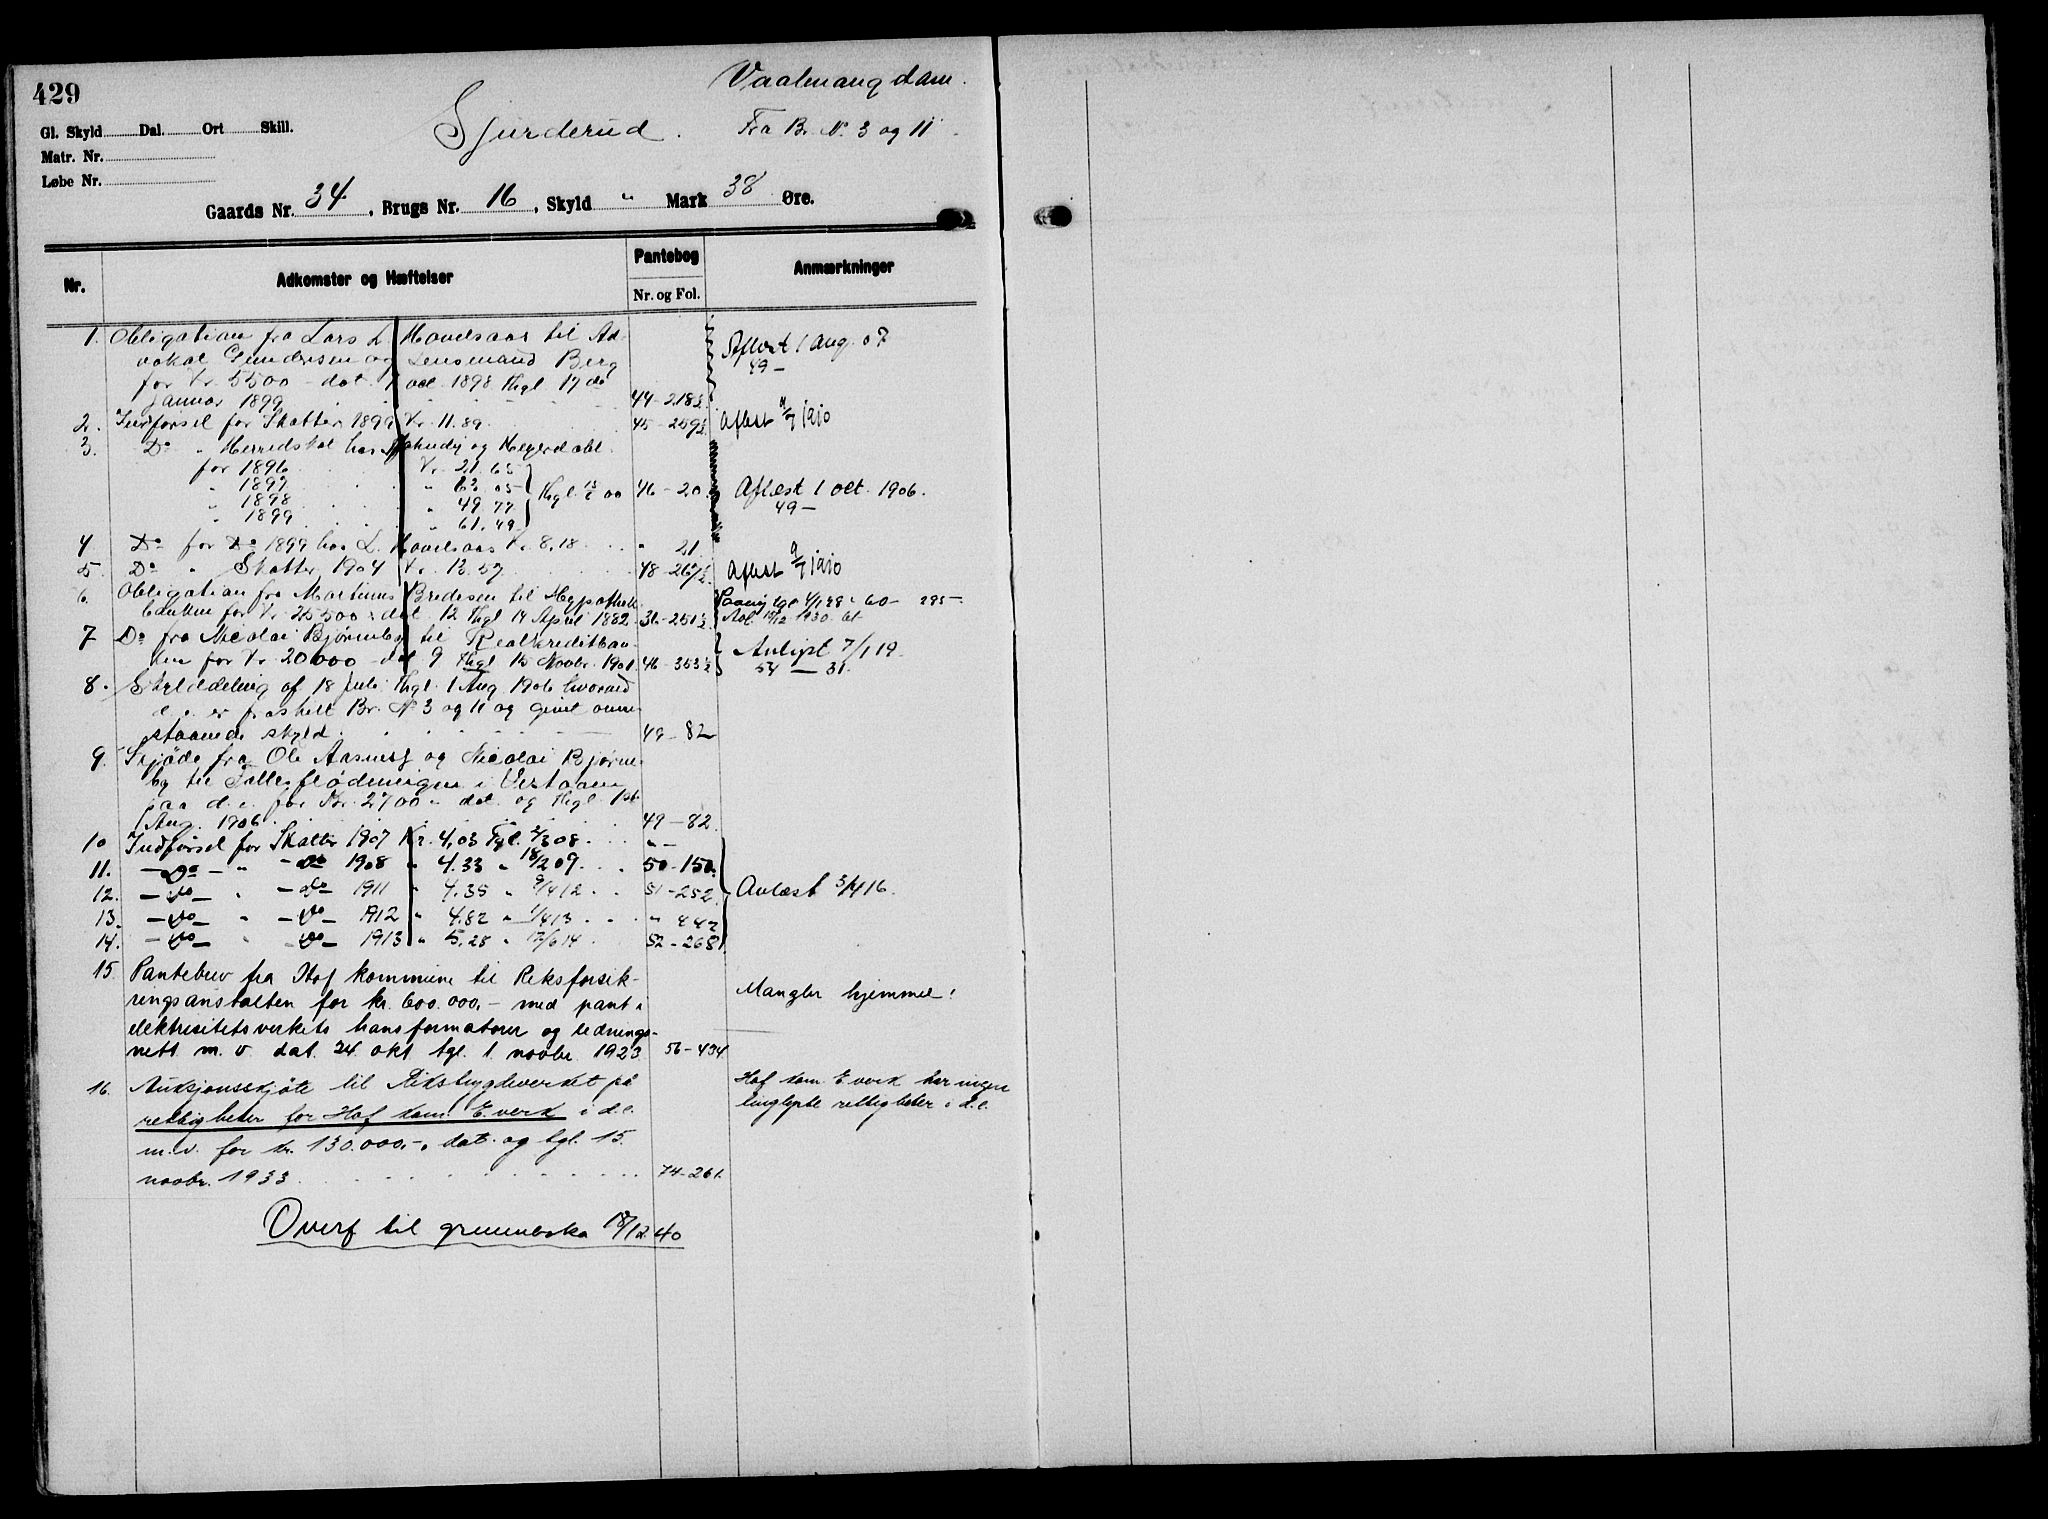 429
Vaalenang dam.
Gl. Skyld Dal. Ort Skill.
Sjurderud.
Fra Br. N. 3 og 11.
Matr. Nr.
Løbe Nr.
Gaards Nr. 34, Brugs Nr. 16, Skyld " Mark 38 Øre.
Nr. Adkomster og Hæftelser Pantebog Anmærkninger
Nr. og Fol.
1. Obligation fra Lars L. til Ad- Aflæst 1 Aug. 07
vokat Gundersen og Lensmand Berg 49 –
for Kr. 5500 – dat. 7 oct. 1898 thgl 17 de
Januar 1899 44 – 218½
2. Indførsel for Skatter 1899 Kr. 11.89. 45 – 259½ Aflæst 9/7 1910
3. Do " Herredskat hos og
for 1896 Kr. 21.65
" 1897 " 63.05 Thgl. 00 46 – 20. Aflæst 1 oct. 1906.
" 1898 " 49.77 49 –
" 1899 " 61.49
4 Do for Do 1899 hos L. Kr. 8,18 " 21
5. Do " Skatter 1904 Kr. 13.57 48 – Aflæst 9/7 1910
6. Obligation fra Martinus Bredesen til Hypothek
banken for Kr. 25500 : dat 12 thgl 14 April 1882 31 – 251½ 1930
7 Do fra Nicolai Bjørneby til Realkreditban-
ken for Kr. 20000 – dat 9 thgl 15 Novbr. 1901. 46 – 353½ Avlyst 7/1 19.
54 – 31.
8. Skylddeling af 18 Juli thgl. 1 Aug 1906 hvorved
d. e. er fraskilt Br. No 3 og 11 og givet oven-
staaende skyld. 49 – 82
9. Skjøde fra Ole Aasnes og Nicolai Bjørne-
by til Fællesflødningen i
paa d. e. for Kr. 2700 " dat. og thgl. 1st
Aug. 1906. 49 – 82.
10 Indførsel for Skatter 1907 Kr. 4,03 Tgl. 2/3 08. " –
11. – Do – " – Do 1908 " 4.33 " 18/2 09. 50 – 150.
12. – Do – " – Do 1911 " 4.35 " 9/4 12 51 – 252. Avlæst 3/4 16.
13. – Do – " – Do – 1912 " 4.82 " 1/4 13 " 447
14. – Do – " – Do – 1913 " 5,28 " 12/6 14. 52 – 268.
15. Pantebrev fra Hof kommune til Riksforsik-
ringsanstalten for kr. 600.000,– med pant i Mangler hjemmel!
elektrisitetsverkets transformatorer og lednings-
nett m. v. dat. 24 okt tgl. 1. novbr. 1923. 56 – 434
16. Auksjonsskjøte til Riksbygdeverket på Hof kom. E. verk har ingen
rettigheter for Hof kom. E. verk i d.e. tinglyste rettigheter i d.e.
m.v. for kr. 130.000,–, dat. og tgl. 15.
novbr. 1933 74 – 261.
Overf til grunnboka 18/12 40